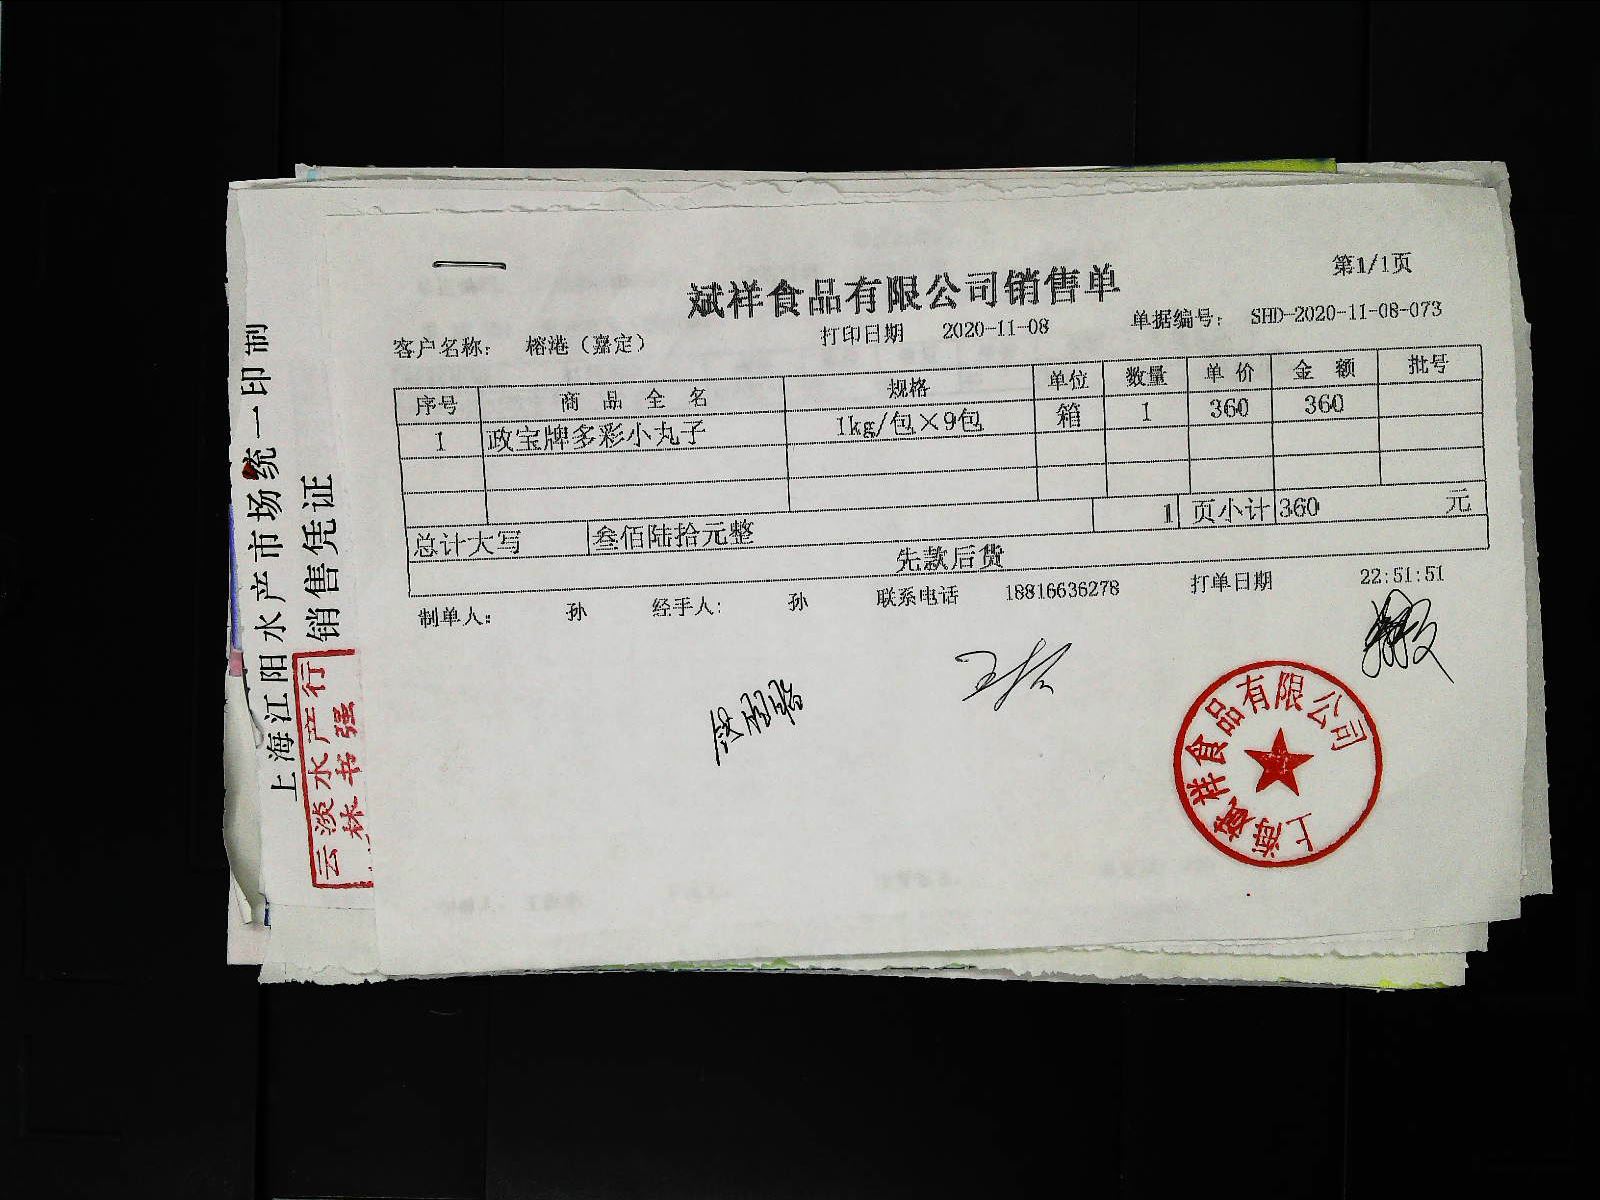 斌祥食品有限公司销售单
第1/1页
客户名称: 榕港（嘉定） 打印日期 2020-11-08 单据编号: SHD-2020-11-08-073
序号 商品全名 规格 单位 数量 单价 金额 批号
1 政宝牌多彩小丸子 1kg/包×9包 箱 1 360 360
总计大写 叁佰陆拾元整 1 页小计 360 元
先款后货
制单人: 孙 经手人: 孙 联系电话 18816636278 打单日期 22:51:51
上海斌祥食品有限公司
上海江阳水产市场统一印制
销售凭证
云淡水产行
林书强